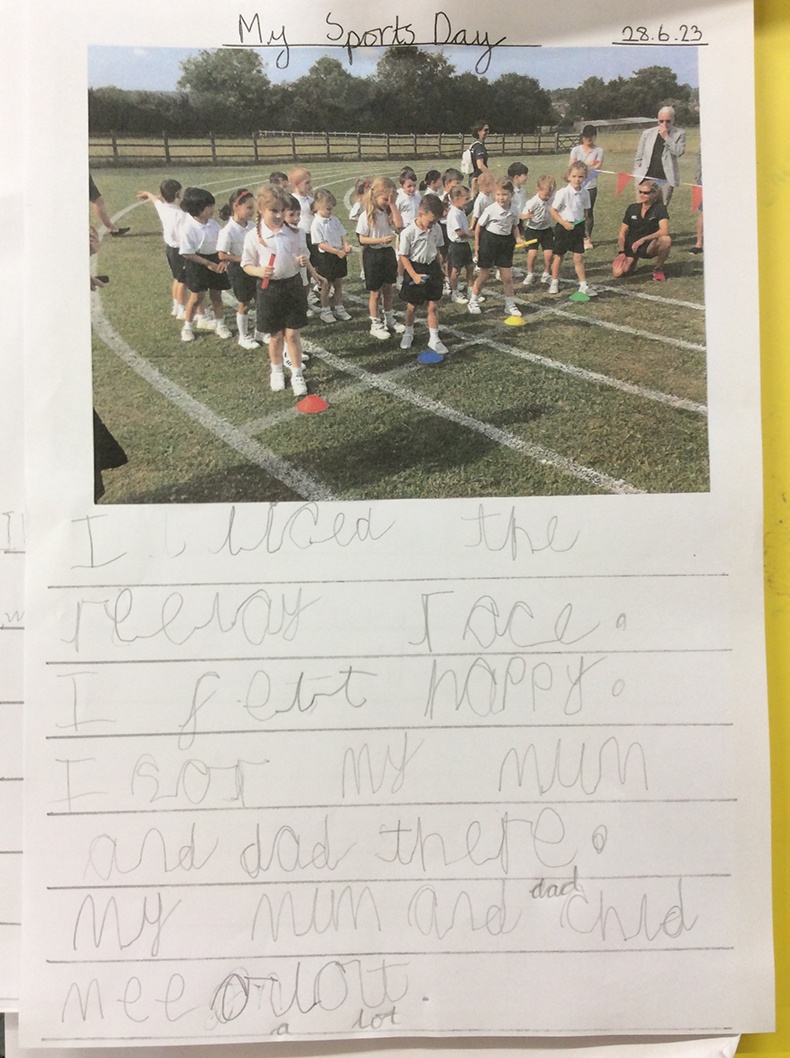 My Sports Day 28.6.23
I liced the
reelay race.
I felt happy.
I sor my mum
and dad there.
dad
my mum and chid
mee
a lot